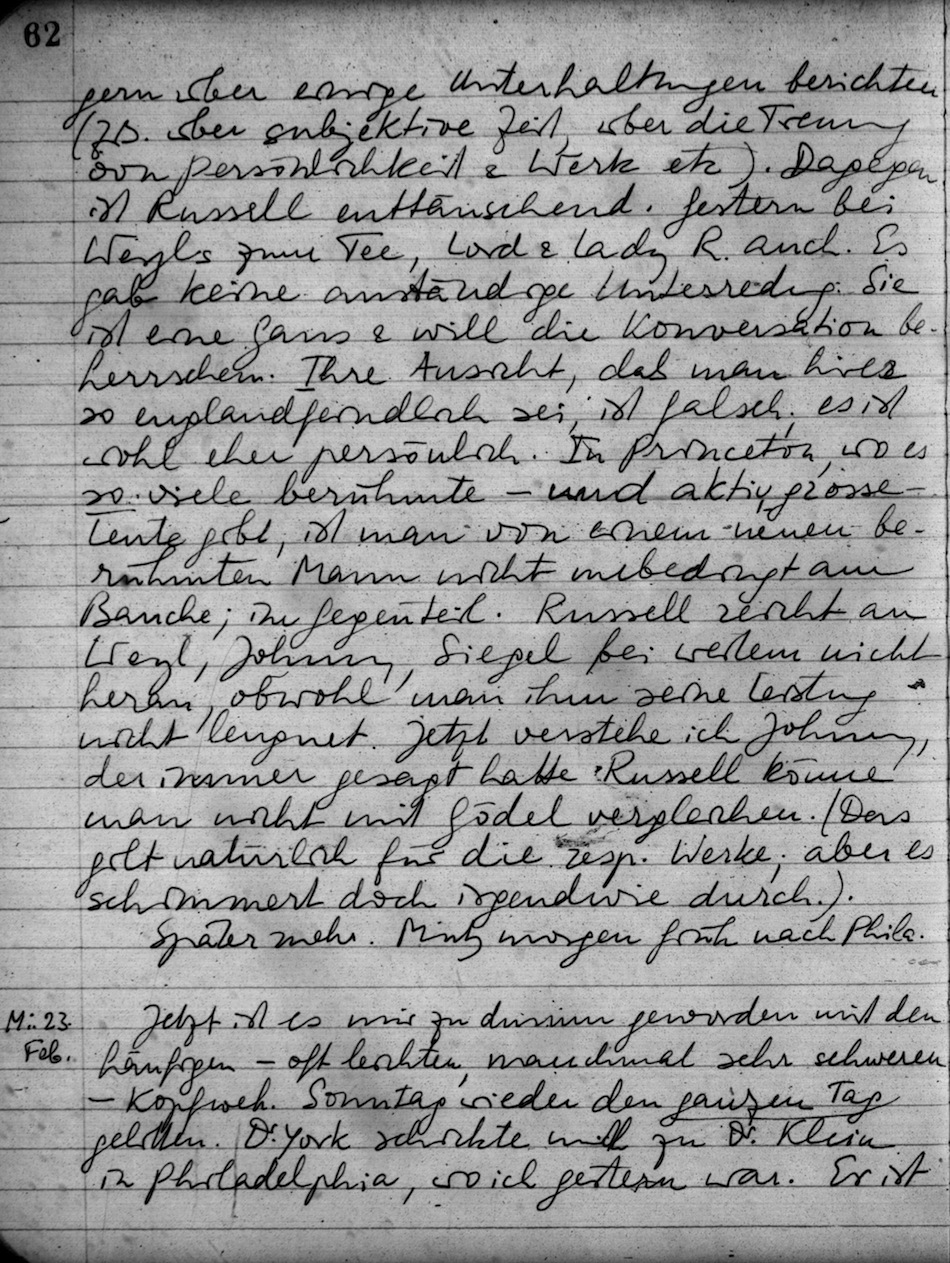 62
gern über einige Unterhaltungen berichten
(zB. über subjektive Zeit, über die Trennung
von Persönlichkeit & Werk etc). Dagegen
ist Russell enttäuschend. Gestern bei
Weyls zum Tee, Lord & Lady R. auch. Es
gab keine anständige Unterredung. Sie
ist eine Gans & will die Konversation be-
herrschen. Ihre Ansicht, daß man hier
so englandfeindlich sei, ist falsch; es ist
wohl eher persönlich. In Princeton, wo es
so viele berühmte – und aktiv grosse –
Leute gibt, ist man von einem neuen be-
rühmten Mann nicht unbedingt am
Bauche; im Gegenteil. Russell reicht an
Weyl, Johnny, Siegel bei weitem nicht
heran, obwohl man ihm seine Leistung
nicht leugnet. Jetzt verstehe ich Johnny,
der immer gesagt hatte: Russell könne
man nicht mit Gödel vergleichen. (Das
gilt natürlich für die resp. Werke; aber es
schimmert doch irgendwie durch.).
Später mehr. Muß morgen früh nach Phila.
Mi. 23.
Feb.
Jetzt ist es mir zu dumm geworden mit den
häufigen – oft leichten, manchmal sehr schweren
– Kopfweh. Sonntag wieder den ganzen Tag
gelitten. Dr. York schickte mich zu Dr. Klein
in Philadelphia, wo ich gestern war. Er ist